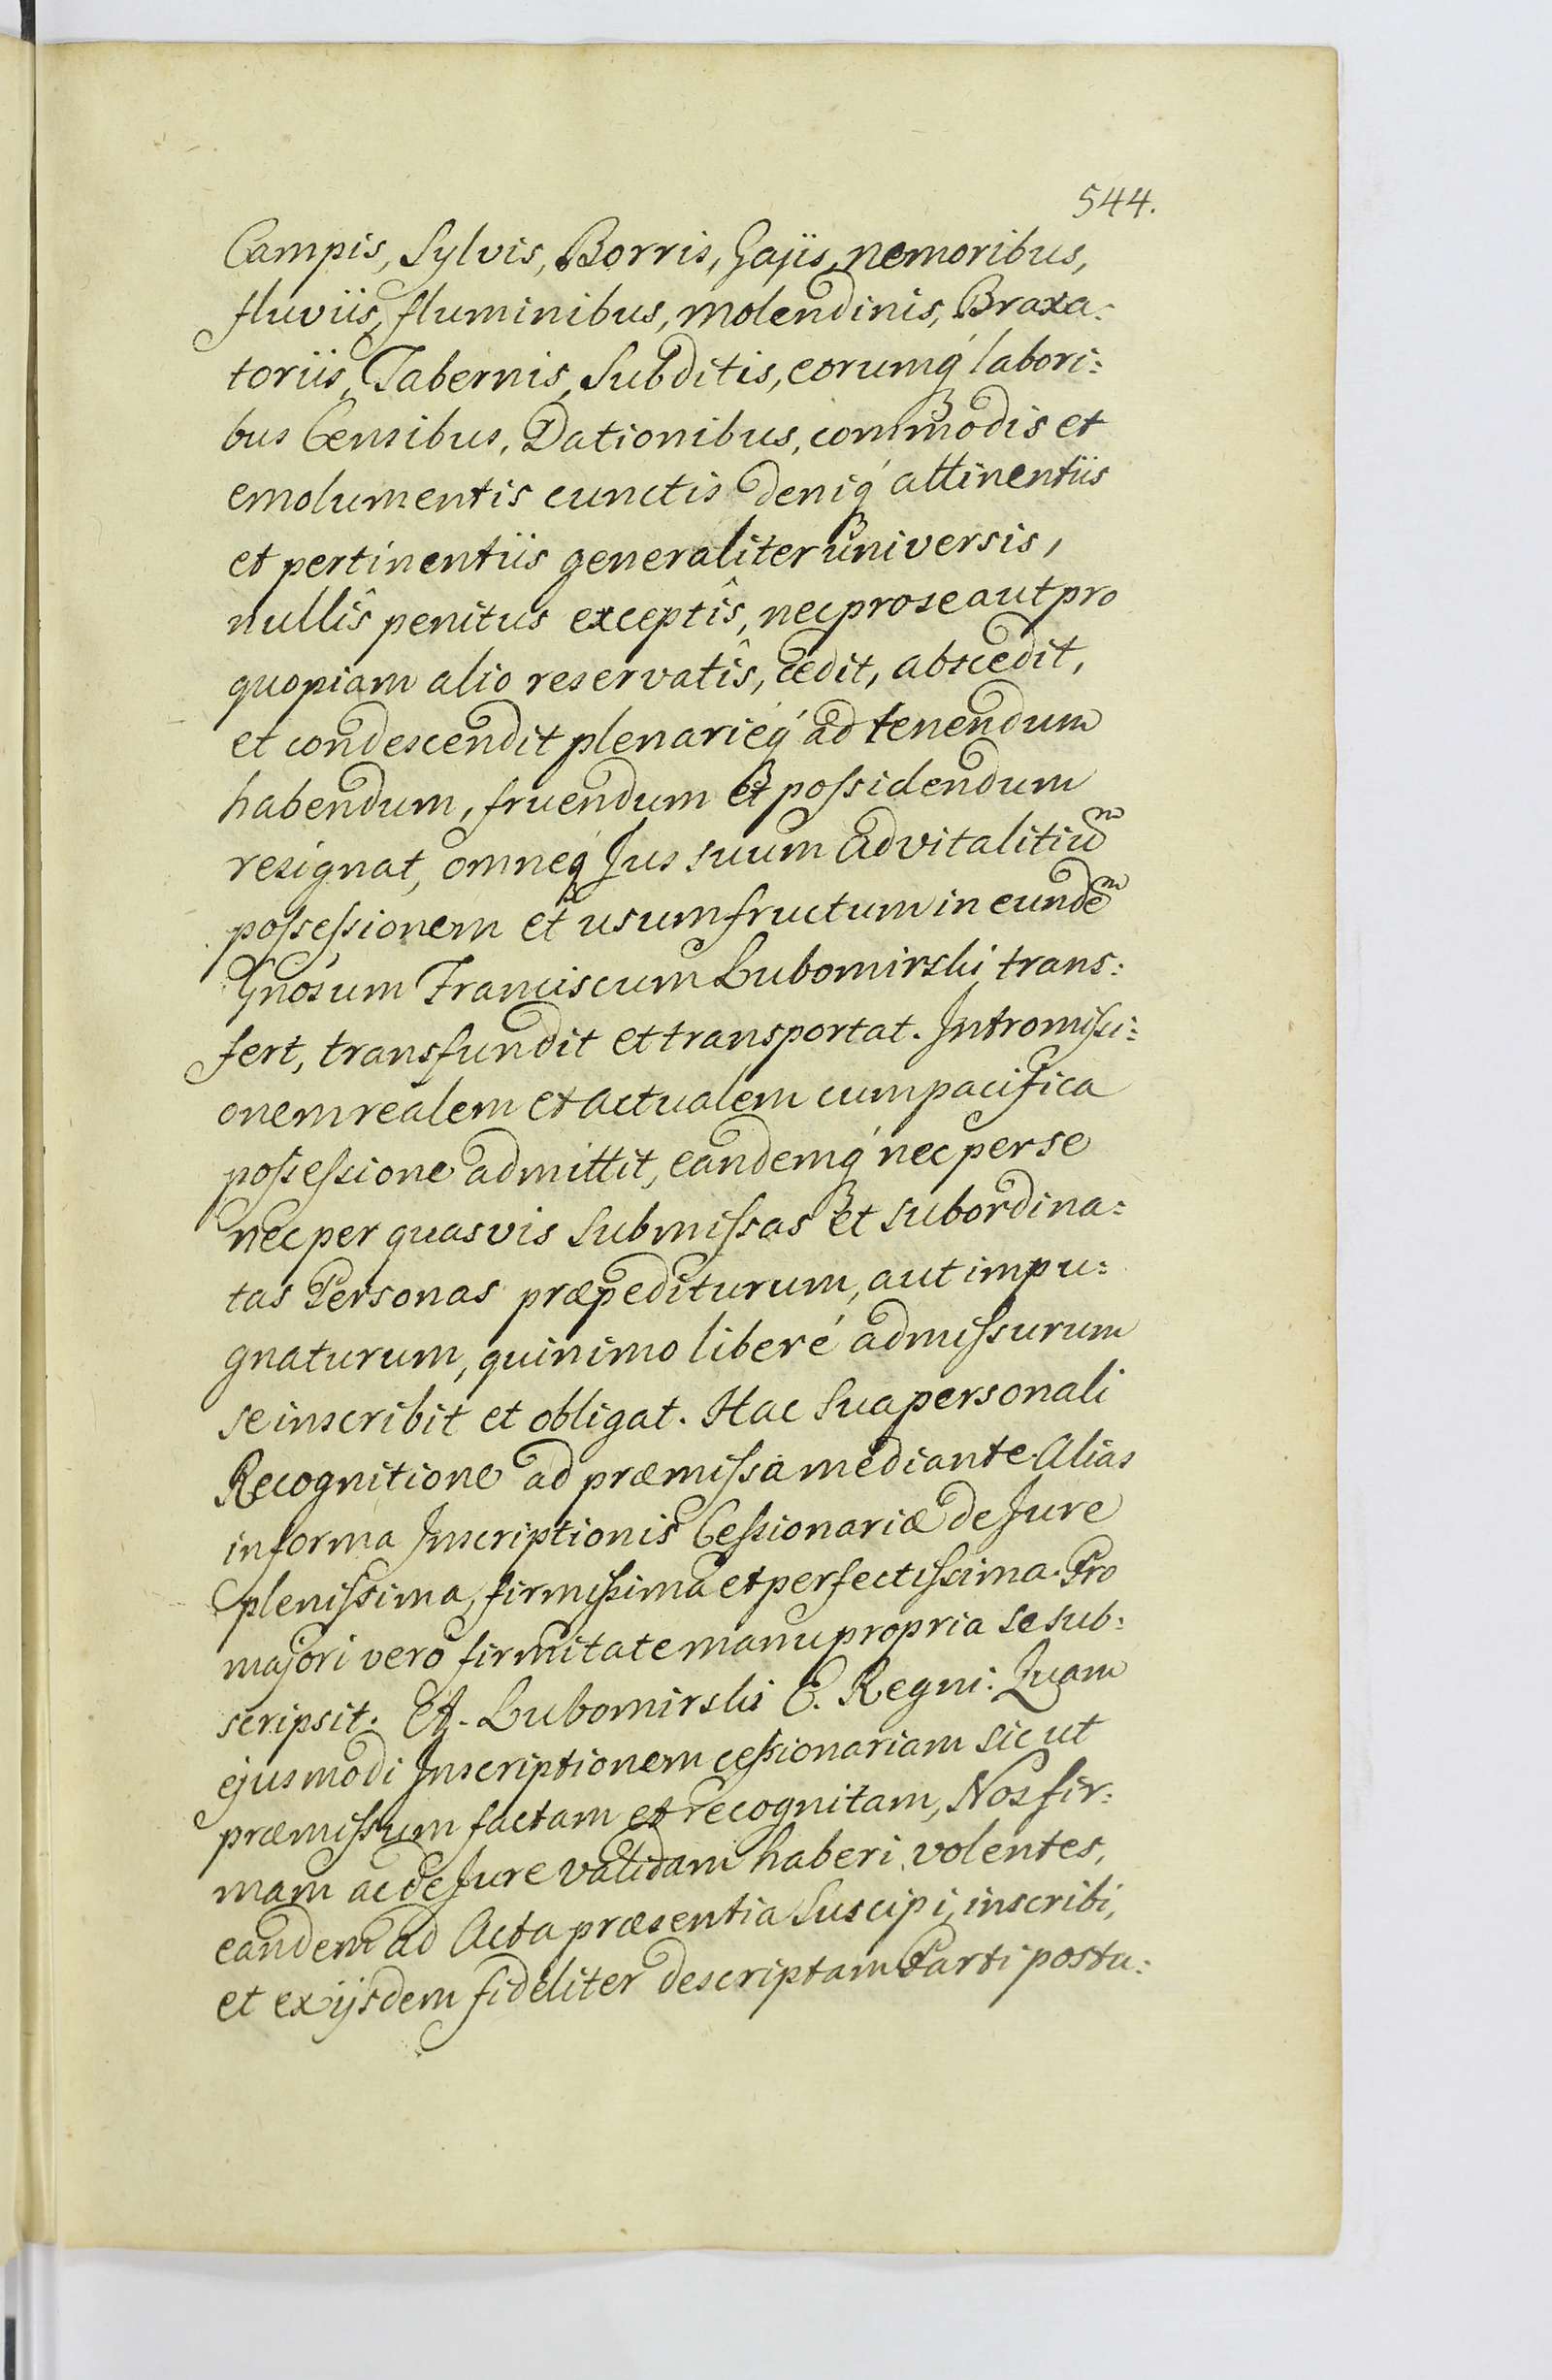 544.
Campis, Sylvis, Borris, Gajis, nemoribus,
fluviis, fluminibus, molendinis, Braxa:
toriis, Tabernis, Subditis, eorumq́ labori:
bus Censibus, Dationibus, commodis et
emolumentis cunctis deniq́ attinentiis
et pertinentiis generaliter universis,
nullîs penitus exceptîs, nec pro se aut pro
quopiam alio reservatîs, cedit, abscedit,
et condescendit plenarieq́ ad tenendum
habendum, fruendum et possidendum
resignat, omneq́ Jus suum advitalitiũm
possessionem et usumfructum in eundẽm
Gnosum Franciscum Lubomirski trans:
fert, transfundit et transportat. Intromissi:
onem realem et actualem cum pacifica
possessione admittit, eandemq́ nec per se
nec per quasvis submissas et subordina:
tas Personas præpediturum, aut impu:
gnaturum, quinimo liberé admissurum
se inscribit et obligat. Hac sua personali
Recognitione ad præmissa mediante. Alias
in forma Inscriptionis Cessionariæ de Jure
plenissima, firmissima et perfectissima. Pro
majori vero firmitate manu propria se sub:
scripsit. Lubomirski C. Regni: Quam
ejusmodi Inscriptionem cessionariam sic ut
præmissum factam et recognitam, Nos fir:
mam ac de Jure validam haberi volentes,
eandem ad Acta præsentia suscipi, inscribi,
et ex ijsdem fideliter descriptam Parti postu: